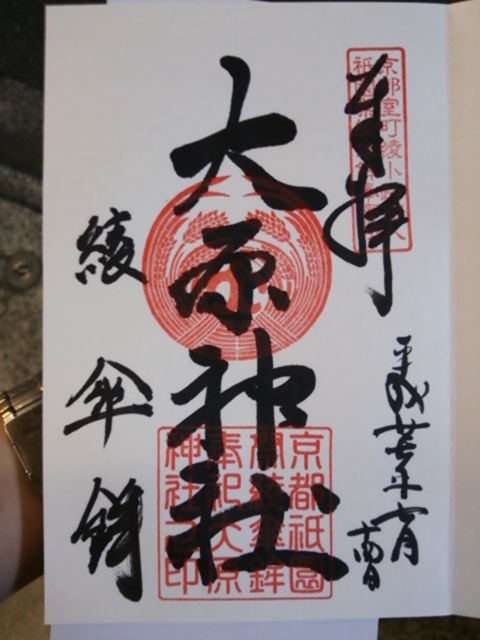 奉拝
京都室町綾小路
平成
年七月
十四日
大原神社
綾傘鉾
京都祇園
綾傘鉾
奉祀大原
神社之印